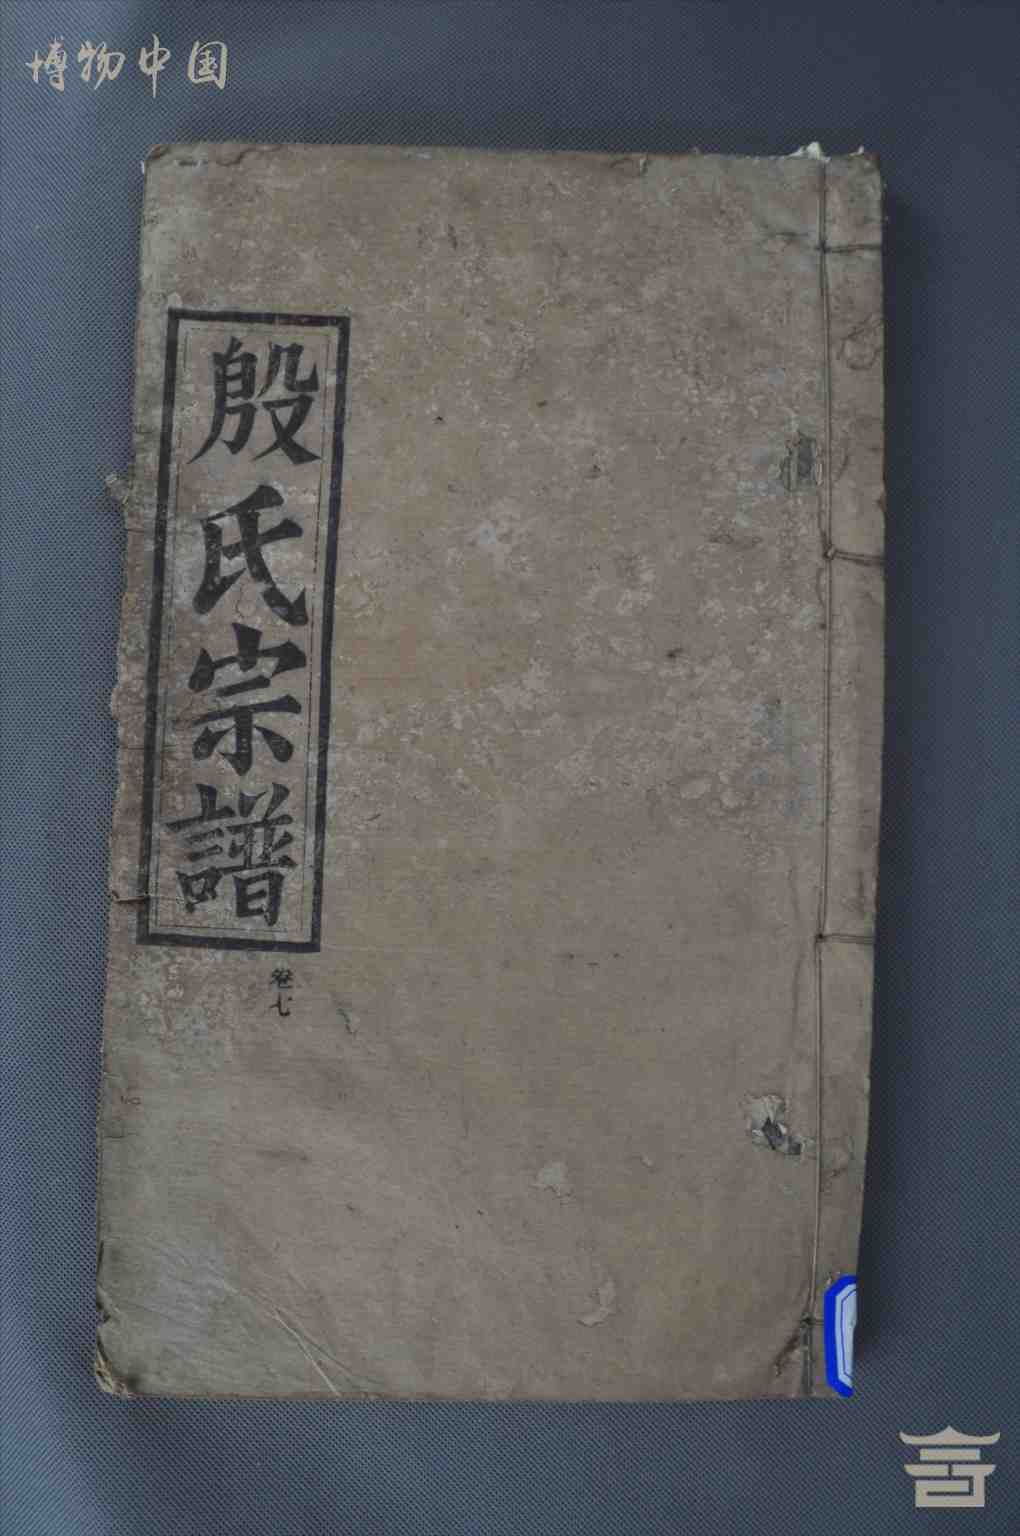 博物中国
殷氏宗譜
卷七